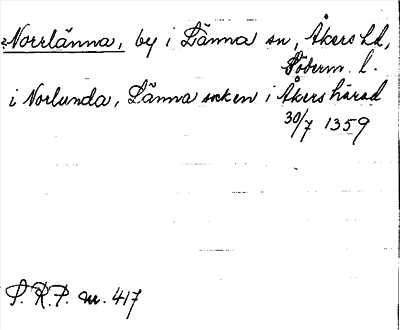 Norrlänna, by i Länna sn, Åkers hd,
Söderm. l.
i Norlunda, Länna socken i Åkers härad
30/7 1359
S.R.P. nr. 417